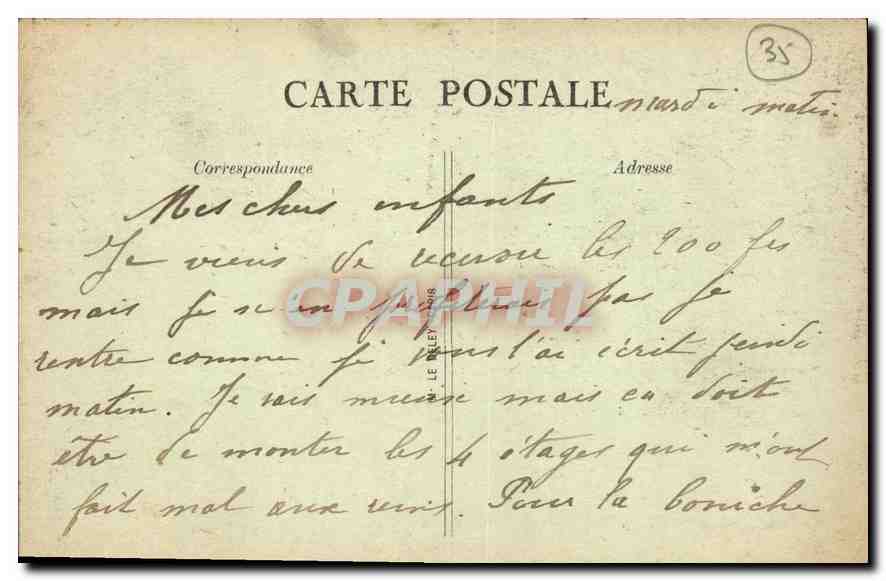 35
CARTE POSTALE
mardi matin
Correspondance
Adresse
Mes chers enfants
Je viens de recevoir les 200 frs
mais je n'en profiterais pas je
rentre comme je vous l'ai écrit jeudi
matin. Je vais mieux mais ca doit
être de monter les 4 étages qui m'ont
fait mal aux reins. Pour la boniche
LE DELEY PARIS
CPAPHIL